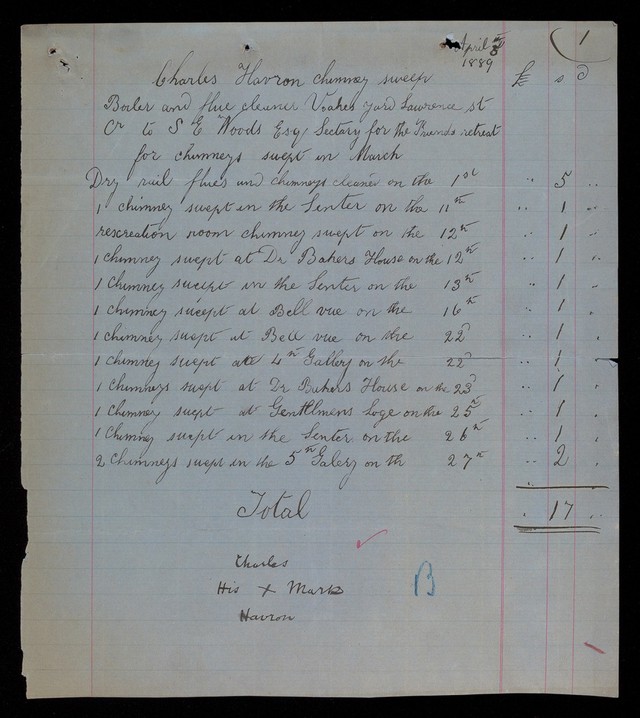 1
April 8th
1889
Charles Havron chimney sweep £ s d
Boiler and flue cleaner Voakes yard Lawrence st
Cr to S E Woods Esq Sectary for the Friends retreat
for chimneys swept in March
Dry rail flues and chimneys cleaned on the 1st .. 5 ..
1 chimney swept in the Senter on the 11th .. 1 ..
rescreation room chimney swept on the 12th .. 1 ..
1 chimney swept at Dr Bakers House on the 12th .. 1 ..
1 chimney swept in the Senter on the 13th .. 1 ..
1 chimney swept at Bell vue on the 16th .. 1 ..
1 chimney swept at Bell vue on the 22d .. 1 ..
1 chimney swept at 4th Gallery on the 22d .. 1 ..
1 chimneys swept at Dr Bakers House on the 23d .. 1 ..
1 chimney swept at Gentlmens Loge on the 25th .. 1 ..
1 chimny swept in the Senter on the 26th .. 1 ..
2 chimneys swept in the 5th Galery on th 27th .. 2 ..
Total . 17 ..
Charles
His x Mark
Havron
B